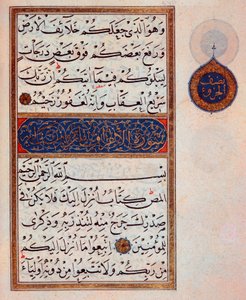 وهو الذي جعلكم خلائف الأرض
ورفع بعضكم فوق بعض درجات
ليبلوكم في ما آتيكم إن ربك
سريع العقاب وإنه لغفور رحيم
سورة الأعراف مائتان
بسم الله الرحمن الرحيم
المص كتاب أنزل إليك فلا يكن في
صدرك حرج منه لتنذر به وذكرى
للمؤمنين اتبعوا ما أنزل إليكم
من ربكم ولا تتبعوا من دونه أولياء
نصف
الجزء